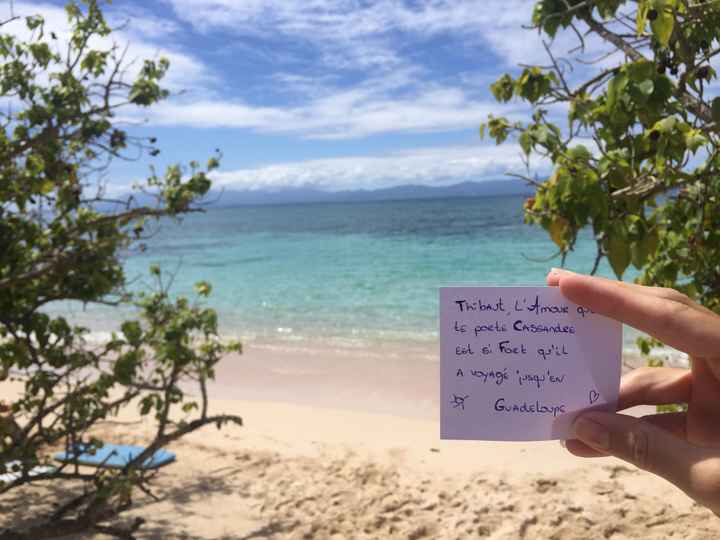 Thibaut, L'Amour que
te porte Cassandre
est si Fort qu'il
a voyagé jusqu'en
Guadeloupe